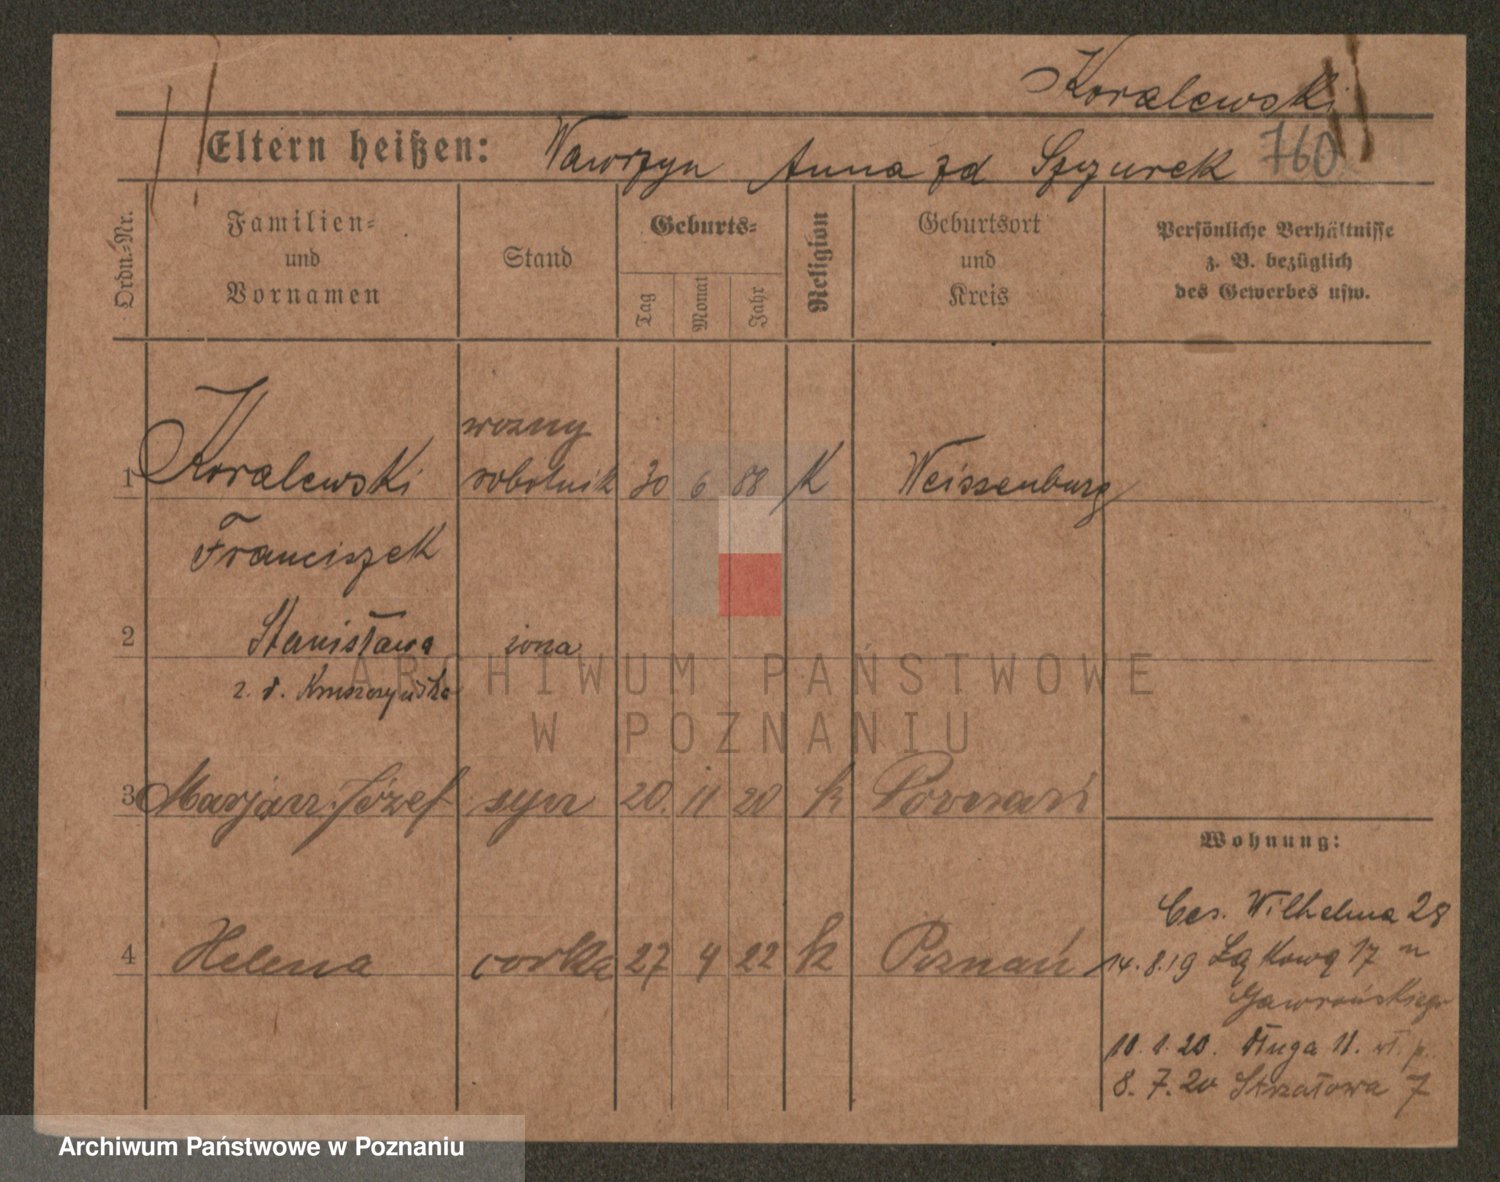 Koralewski
Eltern heißen: Wawrzyn Anna zd Szczurek 760
Ordn.-Nr.
Familien-
und
Vornamen
Stand
Geburts-
Tag
Monat
Jahr
Religion
Geburtsort
und
Kreis
Persönliche Verhältnisse
z. B. bezüglich
des Gewerbes usw.
wozny
1 Koralewski robotnik 30 6 88 K Weissenburg
Franciszek
2 Stanisława zona
z. d. Kruszczyńska
3 Marjan Józef syn 20. 11 20 k Poznań
4 Helena corka 27 4 22 k Poznań
Wohnung:
Ces. Wilhelma 28
14.8.19 Łąkowa 17 u
Gawrońskiego
10.1.20. Długa 11. wł. p.
8.7.20 Strzałowa 7
ARCHIWUM PAŃSTWOWE
W POZNANIU
Archiwum Państwowe w Poznaniu